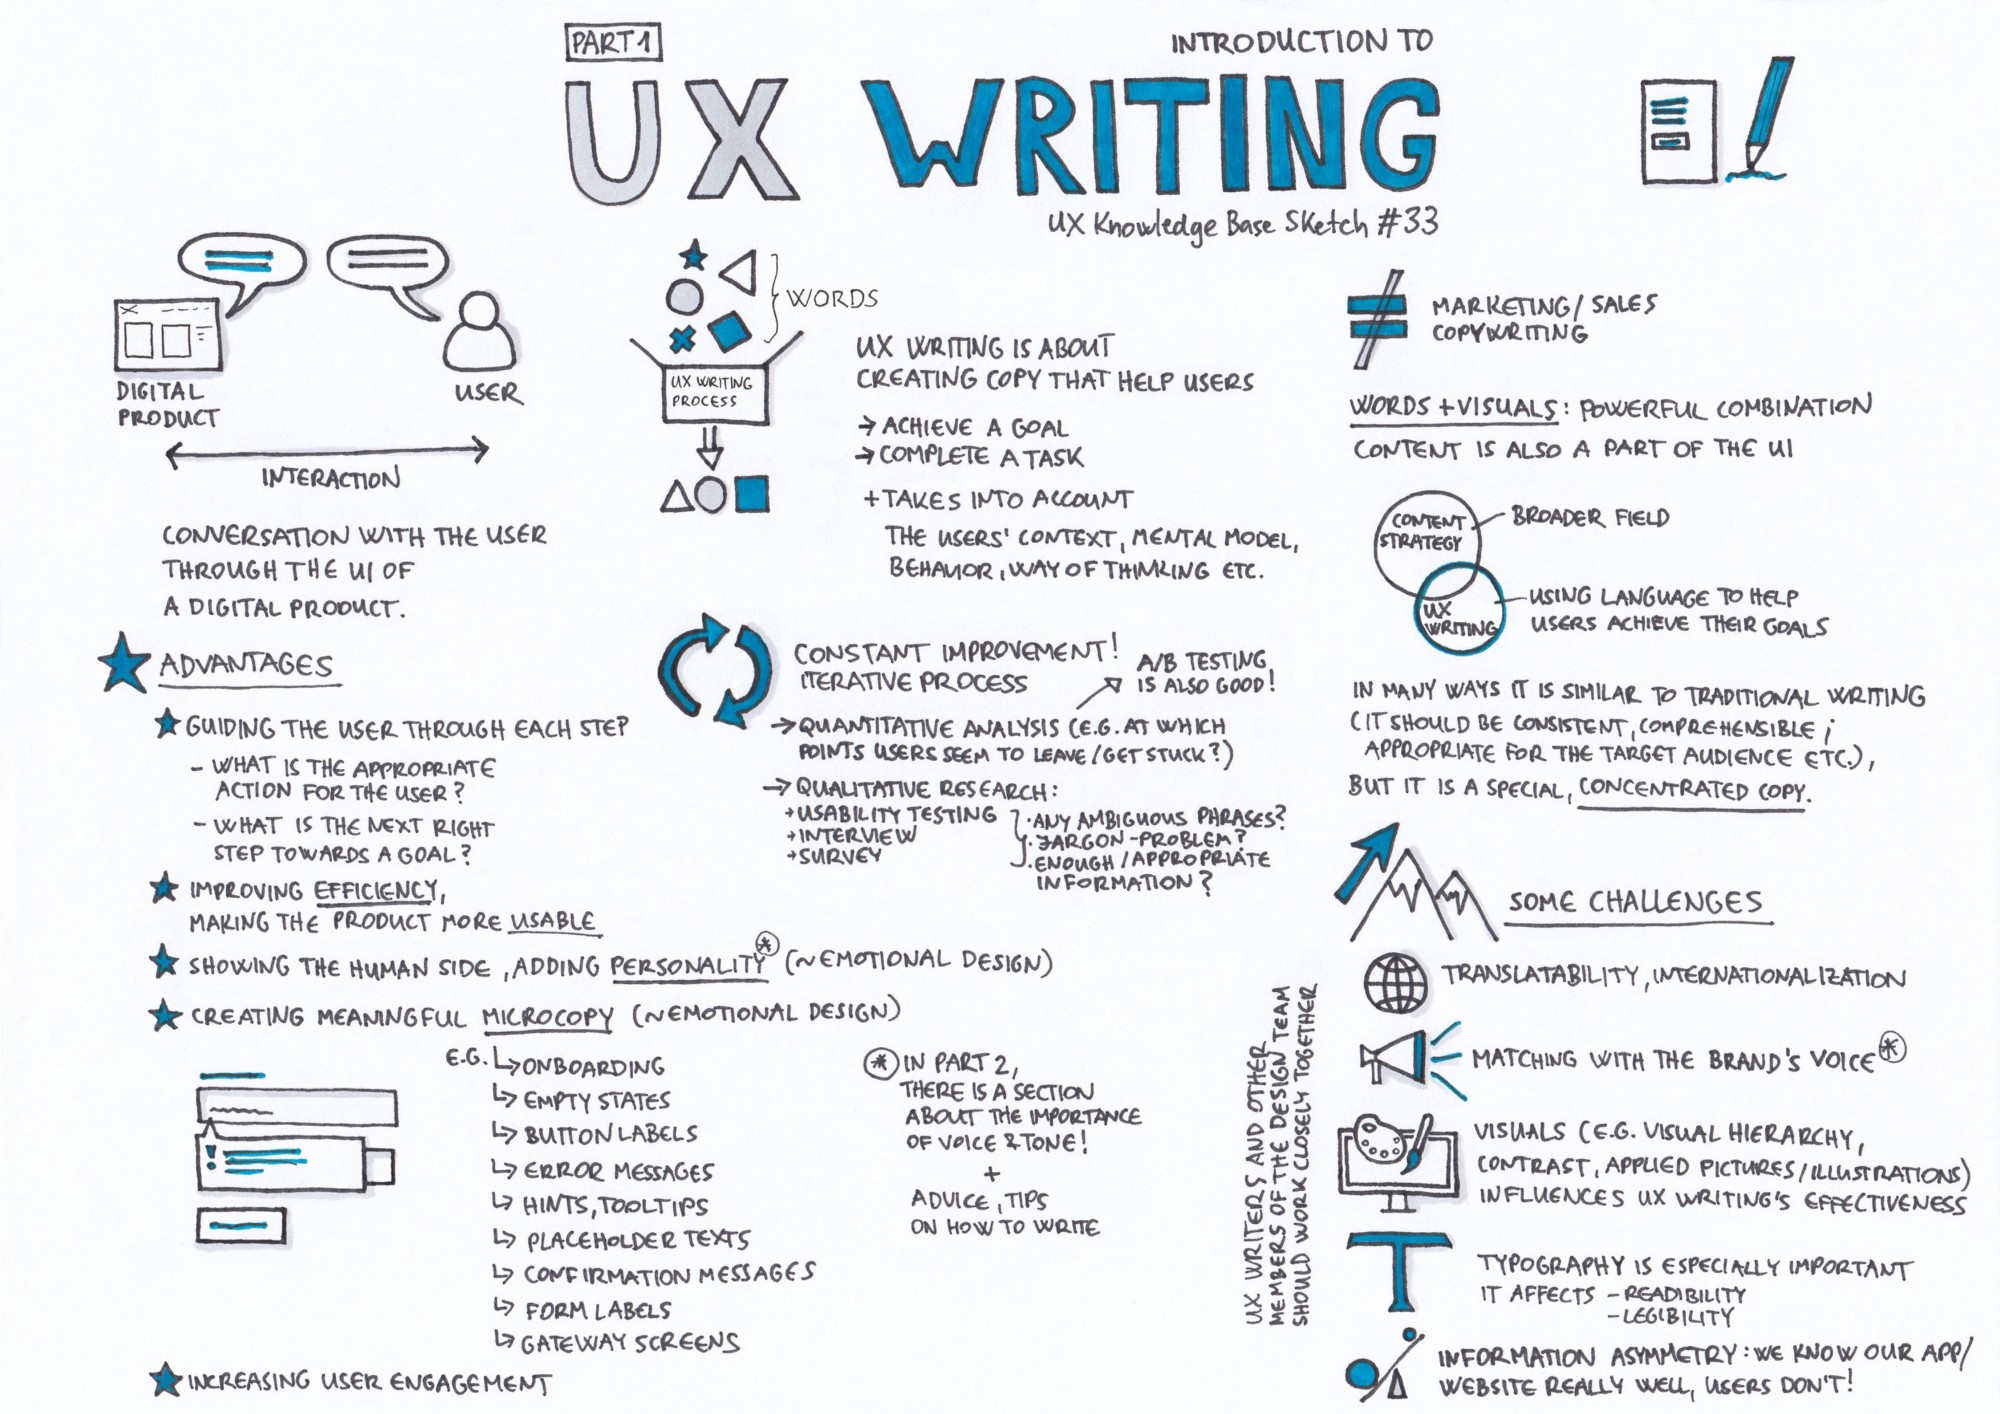 PART 1
INTRODUCTION TO
UX WRITING
UX Knowledge Base Sketch #33
DIGITAL
PRODUCT
USER
INTERACTION
CONVERSATION WITH THE USER
THROUGH THE UI OF
A DIGITAL PRODUCT.
WORDS
UX WRITING
PROCESS
UX WRITING IS ABOUT
CREATING COPY THAT HELP USERS
→ ACHIEVE A GOAL
→ COMPLETE A TASK
+ TAKES INTO ACCOUNT
THE USERS' CONTEXT, MENTAL MODEL,
BEHAVIOR, WAY OF THINKING ETC.
≠ MARKETING/SALES
COPYWRITING
WORDS + VISUALS: POWERFUL COMBINATION
CONTENT IS ALSO A PART OF THE UI
CONTENT
STRATEGY
BROADER FIELD
UX
WRITING
USING LANGUAGE TO HELP
USERS ACHIEVE THEIR GOALS
IN MANY WAYS IT IS SIMILAR TO TRADITIONAL WRITING
(IT SHOULD BE CONSISTENT, COMPREHENSIBLE;
APPROPRIATE FOR THE TARGET AUDIENCE ETC.),
BUT IT IS A SPECIAL, CONCENTRATED COPY.
ADVANTAGES
GUIDING THE USER THROUGH EACH STEP
- WHAT IS THE APPROPRIATE
ACTION FOR THE USER?
- WHAT IS THE NEXT RIGHT
STEP TOWARDS A GOAL?
IMPROVING EFFICIENCY,
MAKING THE PRODUCT MORE USABLE
SHOWING THE HUMAN SIDE, ADDING PERSONALITY* (~EMOTIONAL DESIGN)
CREATING MEANINGFUL MICROCOPY (~EMOTIONAL DESIGN)
E.G. ↳ ONBOARDING
↳ EMPTY STATES
↳ BUTTON LABELS
↳ ERROR MESSAGES
↳ HINTS, TOOLTIPS
↳ PLACEHOLDER TEXTS
↳ CONFIRMATION MESSAGES
↳ FORM LABELS
↳ GATEWAY SCREENS
INCREASING USER ENGAGEMENT
CONSTANT IMPROVEMENT!
ITERATIVE PROCESS
A/B TESTING
IS ALSO GOOD!
→ QUANTITATIVE ANALYSIS (E.G. AT WHICH
POINTS USERS SEEM TO LEAVE/GET STUCK?)
→ QUALITATIVE RESEARCH:
→ USABILITY TESTING
→ INTERVIEW
→ SURVEY
· ANY AMBIGUOUS PHRASES?
· JARGON-PROBLEM?
· ENOUGH/APPROPRIATE
INFORMATION?
* IN PART 2,
THERE IS A SECTION
ABOUT THE IMPORTANCE
OF VOICE & TONE!
+
ADVICE, TIPS
ON HOW TO WRITE
UX WRITERS AND OTHER
MEMBERS OF THE DESIGN TEAM
SHOULD WORK CLOSELY TOGETHER
SOME CHALLENGES
TRANSLATABILITY, INTERNATIONALIZATION
MATCHING WITH THE BRAND'S VOICE*
VISUALS (E.G. VISUAL HIERARCHY,
CONTRAST, APPLIED PICTURES/ILLUSTRATIONS)
INFLUENCES UX WRITING'S EFFECTIVENESS
T
TYPOGRAPHY IS ESPECIALLY IMPORTANT
IT AFFECTS - READIBILITY
- LEGIBILITY
INFORMATION ASYMMETRY: WE KNOW OUR APP/
WEBSITE REALLY WELL, USERS DON'T!